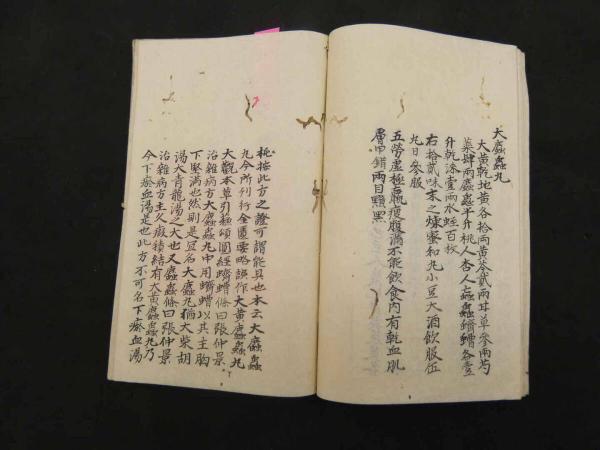 大䗪蟲丸
大黃乾地黃各拾兩黃芩貳兩甘草參兩芍
藥肆兩䗪蟲半升桃人杏人蝱蟲蠐螬各壹
升乾漆壹兩水蛭百枚
右拾貳味末之煉蜜和丸小豆大酒飲服伍
丸日參服
五勞虛極羸瘦腹滿不能飲食內有乾血肌
膚甲錯兩目黯黑
按此方之證可謂能具也本云大䗪蟲
丸今所刊行金匱要略誤作大黃䗪蟲丸
大觀本草引蘇頌圖經蠐螬條曰張仲景
治雜病方大䗪蟲丸中用蠐螬以其主脇
下堅滿也然則是名大䗪丸猶大柴胡
湯大青龍湯之大也又䗪蟲條曰張仲景
治雜病方主久瘕積結有大黃䗪蟲丸乃
今下瘀血湯是也此方不可名下瘀血湯